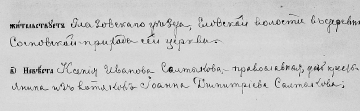 жительствуетъ Глазовскаго уѣзда, Еловской волости въ деревнѣ
Сосновской прихода сей церкви.
б) Невѣста Ксенія Иванова Салтыкова православная, дочь кресть
янина изъ вотяковъ Іоанна Димитріева Салтыкова.